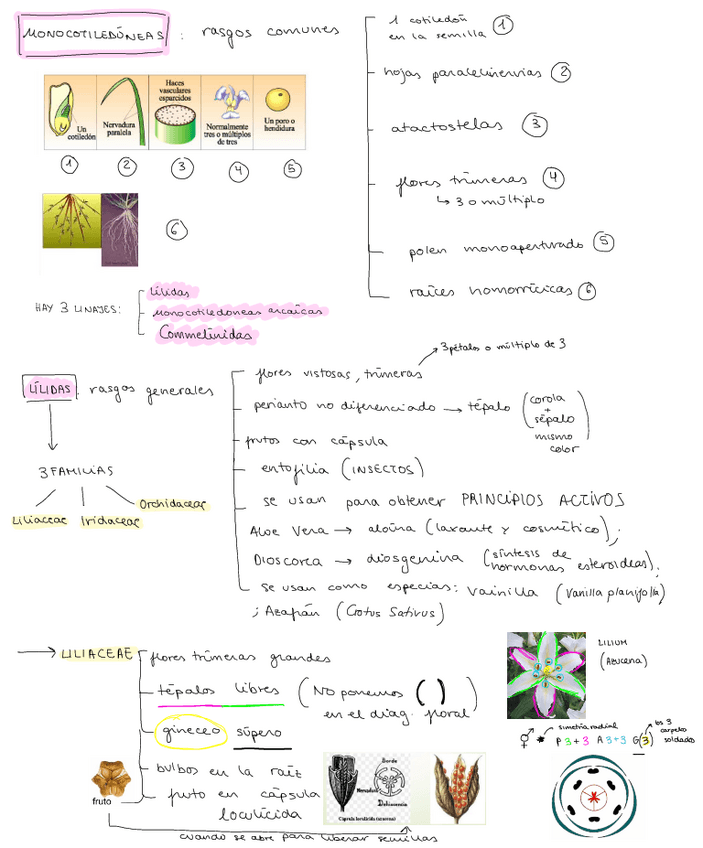 MONOCOTILEDÓNEAS: rasgos comunes
1 cotiledón
en la semilla 1
hojas paralelinervias 2
atactostelas 3
flores trímeras 4
↳ 3 o múltiplo
polen monoaperturado 5
raíces homorrícicas 6
Un
cotiledón
Nervadura
paralela
Haces
vasculares
esparcidos
Normalmente
tres o múltiplos
de tres
Un poro o
hendidura
1 2 3 4 5
6
HAY 3 LINAJES:
Lílidas
Monocotiledoneas arcaicas
Commelinidas
LÍLIDAS: rasgos generales
3 FAMILIAS
Liliaceae Iridaceae Orchidaceae
3 pétalos o múltiplo de 3
flores vistosas, trímeras
perianto no diferenciado → tépalo (corola
+
sépalo
mismo
color)
frutos con cápsula
entofilia (INSECTOS)
se usan para obtener PRINCIPIOS ACTIVOS
Aloe Vera → aloína (laxante y cosmético);
Dioscorea → diosgenina (síntesis de
hormonas esteroideas);
se usan como especias: vainilla (Vanilla planifolia)
; Azafrán (Crotus Sativus)
→ LILIACEAE
flores trímeras grandes
tépalos libres (No ponemos ( )
en el diag. floral)
gineceo súpero
bulbos en la raíz
fruto en cápsula
loculicida
fruto
cuando se abre para liberar semillas
Borde
Nervadura
Dehiscencia
Cápsula loculicida (azucena)
LILIUM
(Azucena)
simetría radial
los 3
carpelos
soldados
⚥ * P 3+3 A 3+3 G(3)